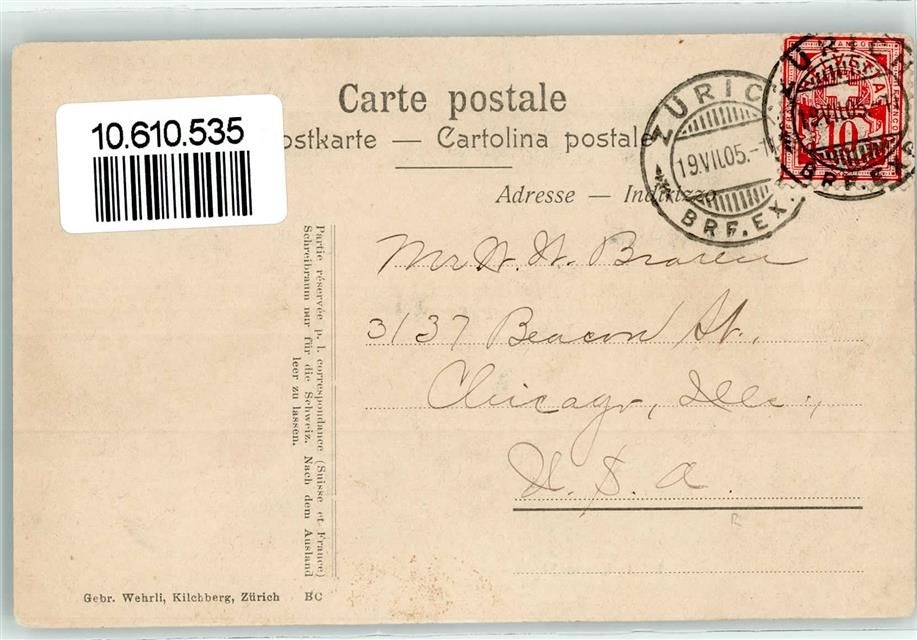 10.610.535
Carte postale
ostkarte — Cartolina postale
Adresse — Indirizzo
ZÜRICH
19.VII.05.
BRF.EX.
ZÜRICH
19.VII.05.
BRF.EX.
FRANCO
10
Mr. W. W.
3137 Beacon St.,
Chicago, Ills.,
U. S. A.
R
Partie réservée p. l. correspondance (Suisse et France)
Schreibraum nur für die Schweiz. Nach dem Ausland
leer zu lassen.
Gebr. Wehrli, Kilchberg, Zürich BC